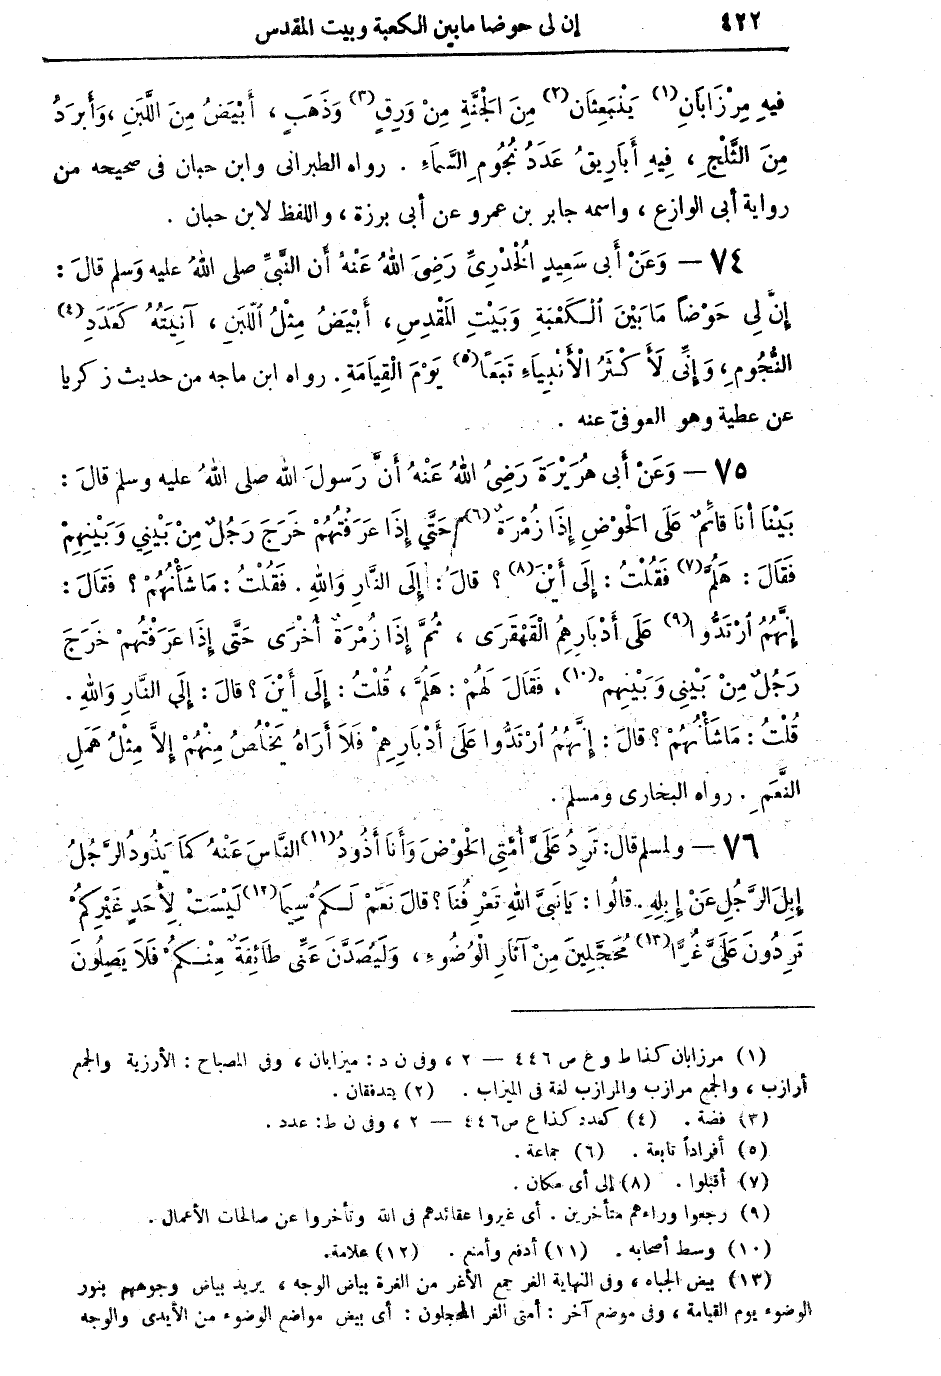 ٤٢٢ إن لى حوضا مابين الكعبة وبيت المقدس
فِيهِ مِرْزَابَانِ (١) يَنْبَعِثَانِ (٢) مِنَ الْجَنَّةِ مِنْ وَرِقٍ (٣) وَذَهَبٍ ، أَبْيَضُ مِنَ اللَّبَنِ ، وَأَبرَدُ
مِنَ الثَّلْجِ ، فِيهِ أَبَارِيقُ عَدَدُ نُجُومِ السَّمَاءِ . رواه الطبرانى وابن حبان فى صحيحه من
رواية أبى الوازع ، واسمه جابر بن عمرو عن أبى برزة ، واللفظ لابن حبان .
٧٤ — وَعَنْ أَبى سَعِيدٍ الْخُدْرِىِّ رَضِىَ اللهُ عَنْهُ أَن النَّبِىَّ صلى اللهُ عليه وَسلم قالَ :
إِنَّ لِى حَوْضاً مَابَيْنَ الْكَعْبَةِ وَبَيْتِ الْمَقْدِسِ ، أَبْيَضُ مِثْلُ اللَّبَنِ ، آنِيَتُهُ كَعَدَدِ (٤)
النُّجُومِ ، وَإِنِّى لَأَكْثَرُ الْأَنْبِيَاءِ تَبَعاً (٥) يَوْمَ الْقِيَامَةِ . رواه ابن ماجه من حديث زكريا
عن عطية وهو العوفىّ عنه .
٧٥ — وَعَنْ أَبى هُرَيْرَةَ رَضِىُ اللهُ عَنْهُ أَنَّ رَسولَ الله صلى اللهُ عليه وسلم قالَ :
بَيْنَا أَنَا قَائِمٌ عَلَى الْحَوْضِ إِذَا زُمْرَةٌ (٦) حَتَّى إِذَا عَرَفْتُهُمْ خَرَجَ رَجُلٌ مِنْ بَيْنِي وَبَيْنِهِمْ
فَقَالَ : هَلُمَّ (٧) فَقُلْتُ : إِلَى أَيْنَ (٨) ؟ قالَ : إِلَى النَّارِ وَاللهِ . فَقُلْتُ : مَا شَأْنُهُمْ ؟ فَقَالَ :
إِنَّهُمُ ارْتَدُّوا (٩) عَلَى أَدْبَارِهِمُ الْقَهْقَرَى ، ثُمَّ إِذَا زُمْرَةٌ أُخْرَى حَتَّى إِذَا عَرَفْتُهُمْ خَرَجَ
رَجُلٌ مِنْ بَيْنِى وَبَيْنِهِمْ (١٠) ، فَقَالَ لَهُمْ : هَلُمَّ ، قُلْتُ : إِلَى أَيْنَ ؟ قالَ : إِلَى النَّارِ وَاللهِ .
قُلْتُ : مَا شَأْنُهُمْ ؟ قالَ : إِنَّهُمُ ارْتَدُّوا عَلَى أَدْبَارِهِمْ فَلَا أَرَاهُ يَخْلُصُ مِنْهُمْ إِلاَّ مِثْلُ هَمَلِ
النَّعَمِ . رواه البخارى ومسلم .
٧٦ — ولمسلم قال : تَرِدُ عَلَىَّ أُمَّتِى الْحَوْضَ وَأَنَا أَذُودُ (١١) النَّاسَ عَنْهُ كَمَا يَذُودُ الرَّجُلُ
إِبِلَ الرَّجُلِ عَنْ إِبِلِهِ . قالُوا : يَانَبِىَّ اللهِ تَعْرِفُنَا ؟ قالَ نَعَمْ لَكُمْ سِيمَا (١٢) لَيْسَتْ لِأَحَدٍ غَيْرِكُمْ
تَرِدُونَ عَلَىَّ غُرًّا (١٣) مُحَجَّلِينَ مِنْ آثَارِ الْوُضُوءِ ، وَلَيُصَدَّنَّ عَنِّى طَائِفَةٌ مِنْكُمْ فَلَا يَصِلُونَ
(١) مرزابان كذا ط و ع ص ٤٤٦ — ٢ ، وفى ن د : ميزابان ، وفى المصباح : الأرزية والجمع
أرازب ، والجمع مرازب والمرازب لغة فى الميزاب . (٢) يتدفقان .
(٣) فضة . (٤) كعدد كذا ع ص ٤٤٦ — ٢ ، وفى ن ط : عدد .
(٥) أفراداً تابعة . (٦) جماعة .
(٧) أقبلوا . (٨) إلى أى مكان .
(٩) رجعوا وراءهم متأخرين . أى غيروا عقائدهم فى الله وتأخروا عن صالحات الأعمال .
(١٠) وسط أصحابه . (١١) أدفع وأمنع . (١٢) علامة .
(١٣) بيض الجباه ، وفى النهاية الغر جمع الأغر من الغرة بياض الوجه ، يريد بياض وجوههم بنور
الوضوء يوم القيامة ، وفى موضع آخر : أمتى الغر المحجلون : أى بيض مواضع الوضوء من الأيدى والوجه